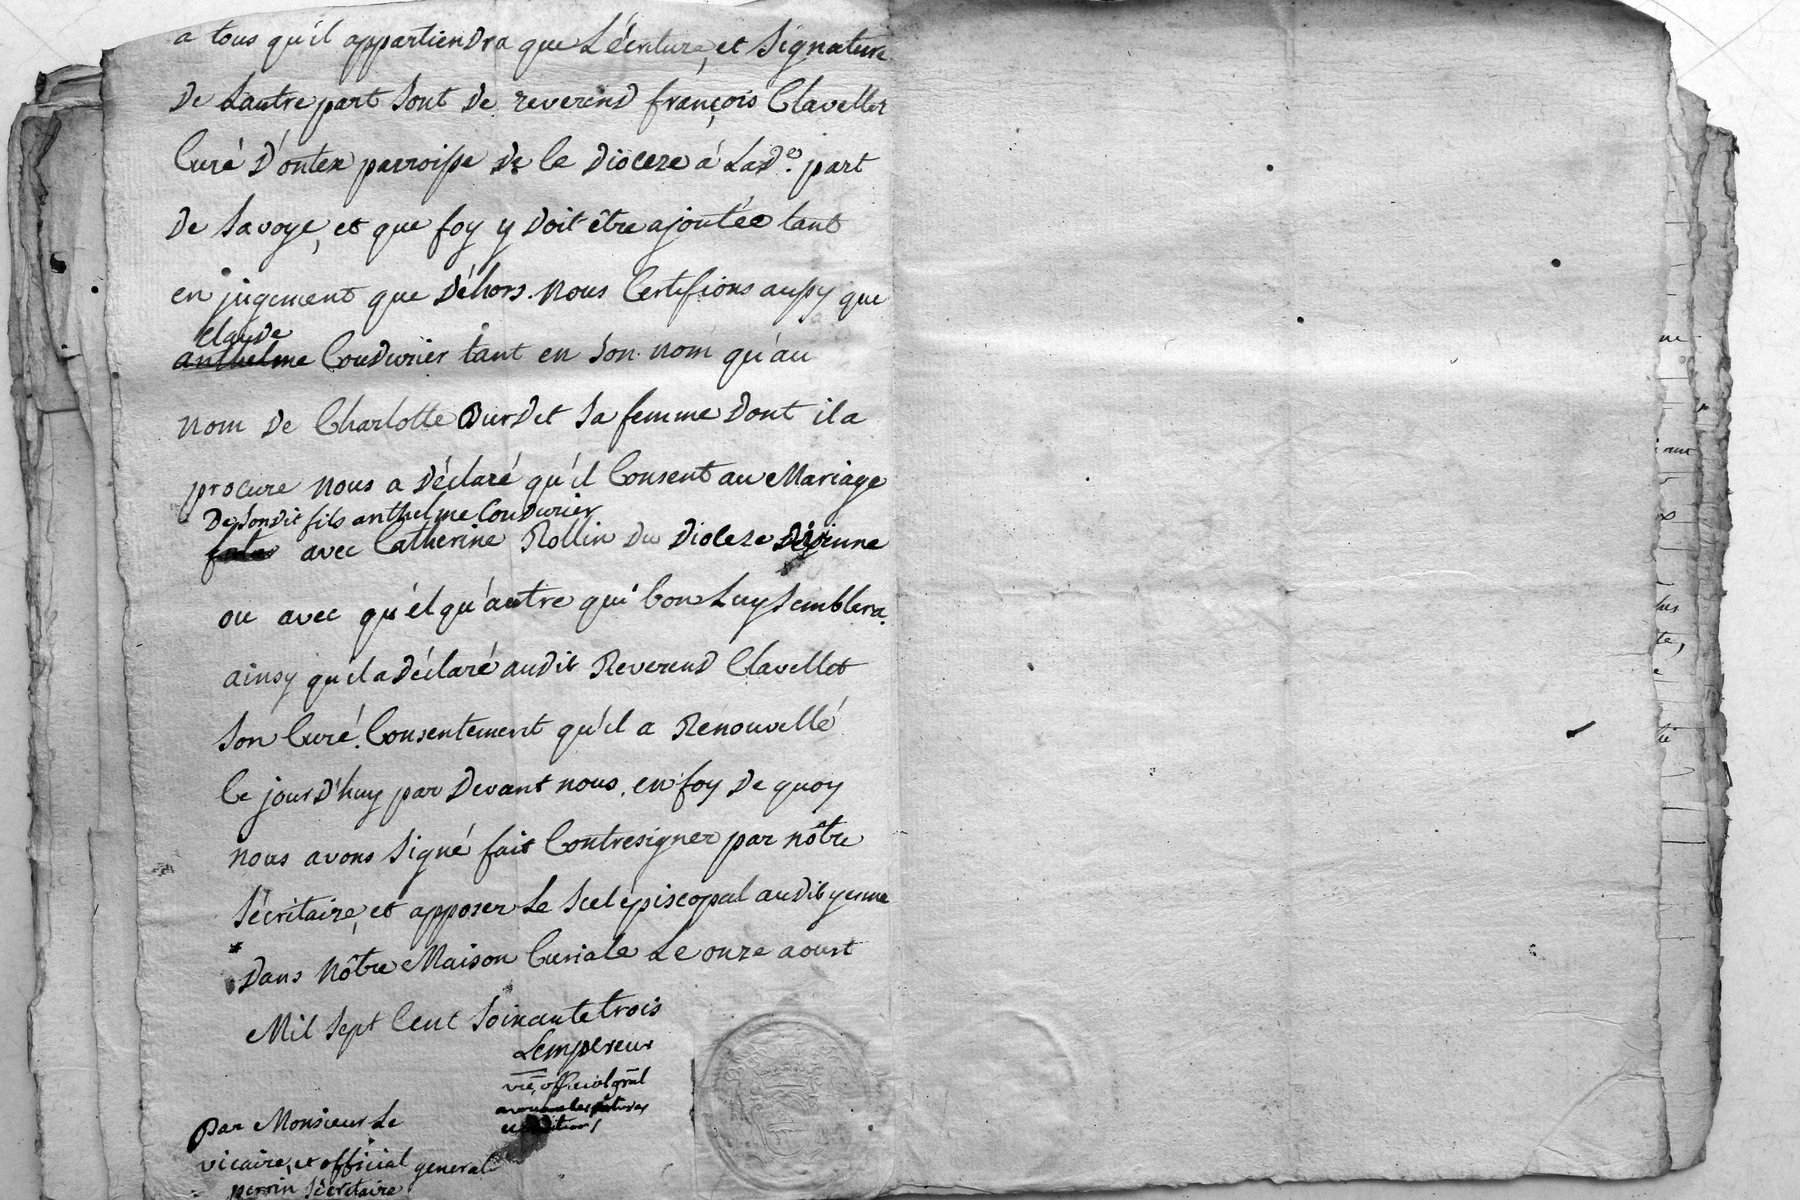 a tous qu'il appartiendra que L'écriture, et Signature
De Lautre part sont de reverend françois Clavellet
Curé D'ontex parroisse de Ce Dioceze á Lade. part
De Savoye, et que foy y Doit être ajoutée tant
en jugement que Déhors. nous Certifions aussy que
Claude
anthelme Coudurier tant en son nom qu'au
nom De Charlotte Burdet sa femme Dont il a
procure nous a Déclaré qu'il Consent au Mariage
De sondit fils anthelme Coudurier
avec Catherine Rollin Du Dioceze
ou avec qu'élqu'autre qui bon Luy semblera.
ainsy qu'il a Déclaré audit Reverend Clavellet
son Curé. Consentement qu'il a Renouvellé
Ce jourd'huy par Devant nous. en foy De quoy
nous avons signé fait Contresigner par nôtre
sécrétaire, et apposer Le Scel épiscopal audit yenne
Dans Nôtre Maison Curiale Le onze aoust
Mil sept Cent soixante trois
Lempereur
vic. official gñal
par Monsieur Le
vicaire, et official general
perrin sécretaire
ne
te,